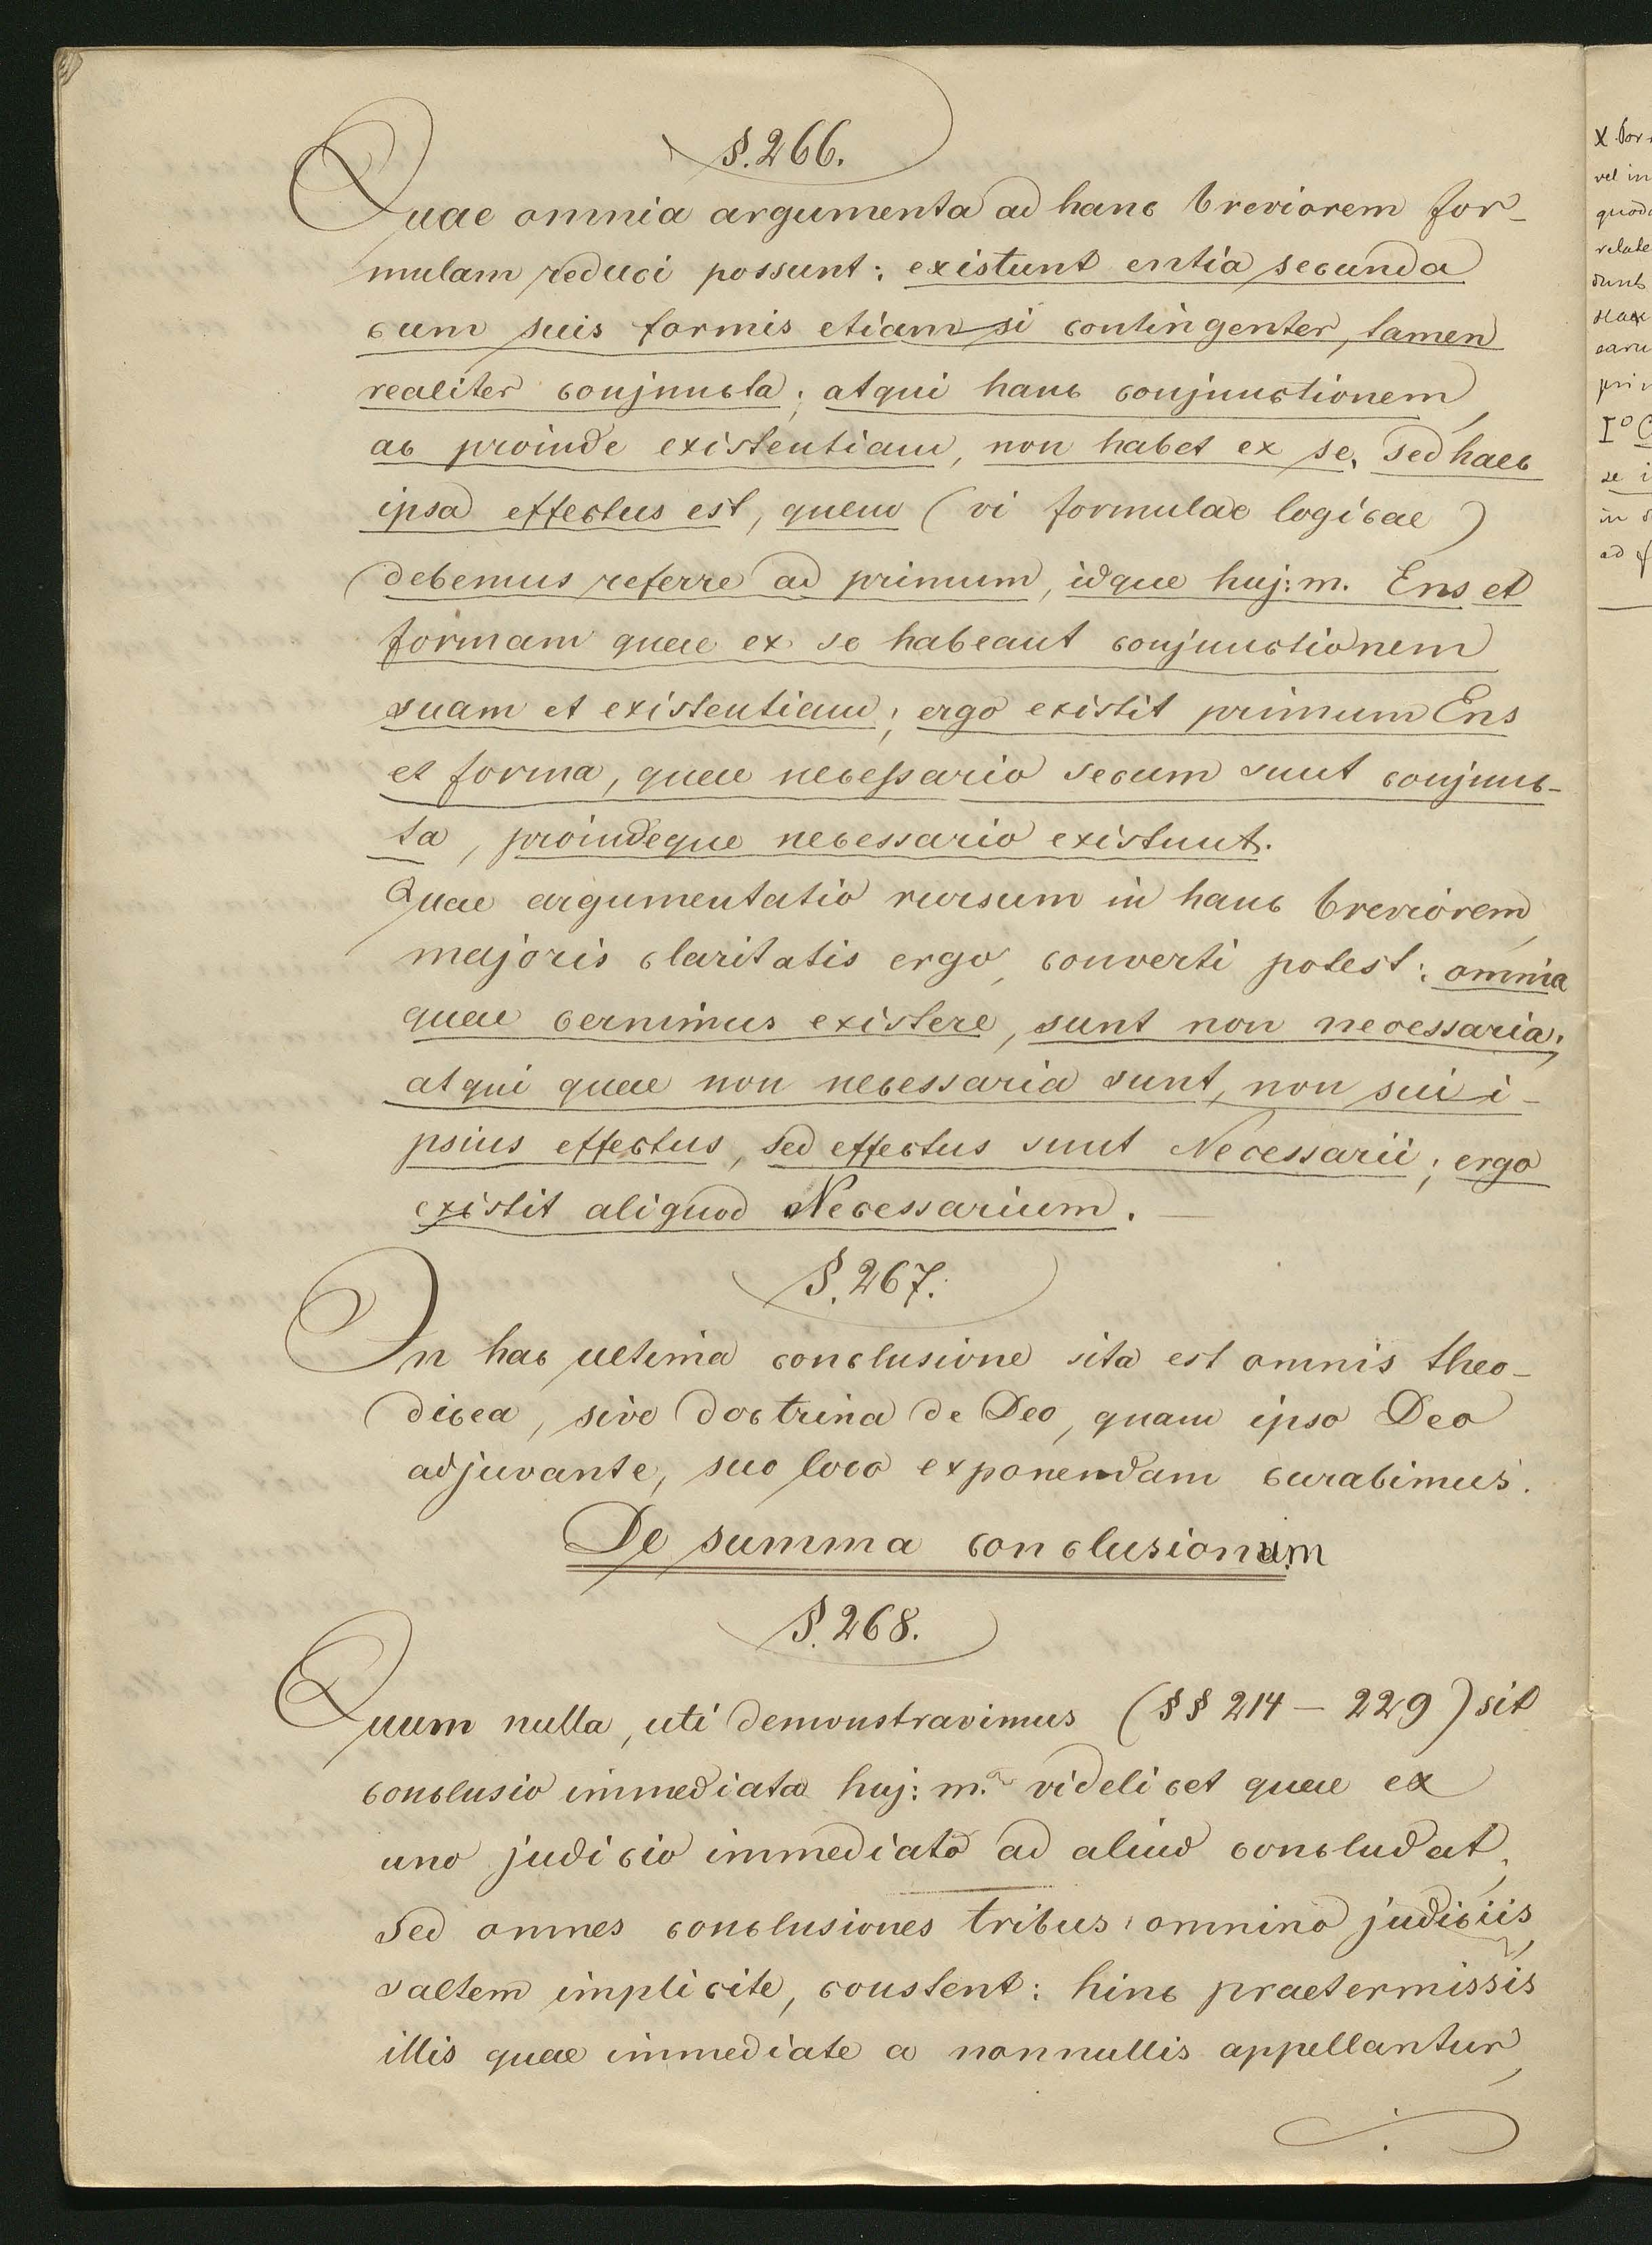 §. 266.
Quae omnia argumenta ad hanc breviorem for-
mulam reduci possunt: existunt entia secunda
cum suis formis etiam si contingenter, tamen
realiter conjuncta; atqui hanc conjunctionem,
ac proinde existentiam, non habet ex se, sed haec
ipsa effectus est, quem (vi formulae logicae)
debemus referre ad primum, idque huj: m. Ens et
formam quae ex se habeant conjunctionem
suam et existentiam; ergo existit primum Ens
et forma, quae necessario secum sunt conjunc-
ta, proindeque necessario existunt.
Quae argumentatio rursum in hanc breviorem,
majoris claritatis ergo, converti potest: omnia
quae cernimus existere, sunt non necessaria;
atqui quae non necessaria sunt, non sui i-
psius effectus, sed effectus sunt Necessarii; ergo
existit aliquod Necessarium. —
§. 267.
In hac ultima conclusione sita est omnis theo-
dicea, sive doctrina de Deo, quam ipso Deo
adjuvante, suo loco exponendam curabimus.
De summa conclusionum
§. 268.
Quum nulla, uti demonstravimus (§§ 214 — 229) sit
conclusio immediata huj: m. videlicet quae ex
uno judicio immediato ad aliud concludat,
sed omnes conclusiones tribus omnino judiciis,
saltem implicite, constent: hinc praetermissis
illis quae immediate a nonnullis appellantur,
vel in
Iº
se i
ad